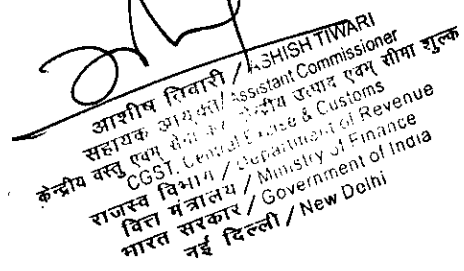 आशीष तिवारी / ASHISH TIWARI
सहायक आयुक्त / Assistant Commissioner
केन्द्रीय वस्तु एवम् सेवा कर केन्द्रीय उत्पाद एवम् सीमा शुल्क
CGST, Central Excise & Customs
राजस्व विभाग / Department of Revenue
वित्त मंत्रालय / Ministry of Finance
भारत सरकार / Government of India
नई दिल्ली / New Delhi